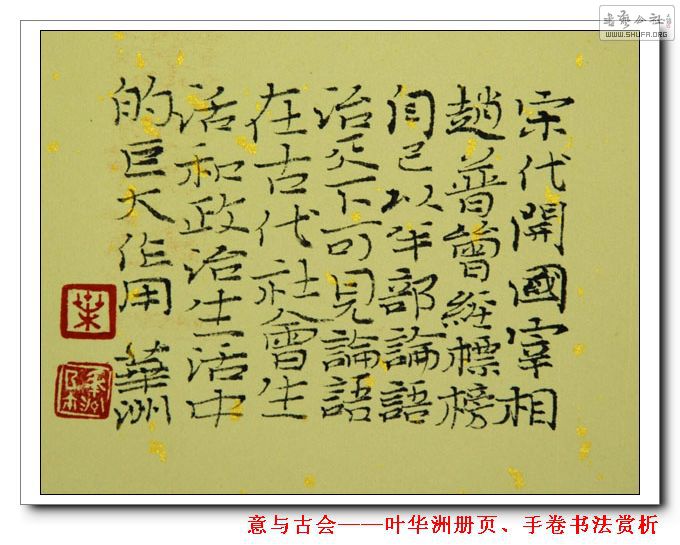 书艺公社
WWW.SHUFA.ORG
宋代開國宰相
趙普曾經標榜
自己以半部論語
治天下可見論語
在古代社會生
活和政治生活中
的巨大作用 華洲
葉
意与古会——叶华洲册页、手卷书法赏析